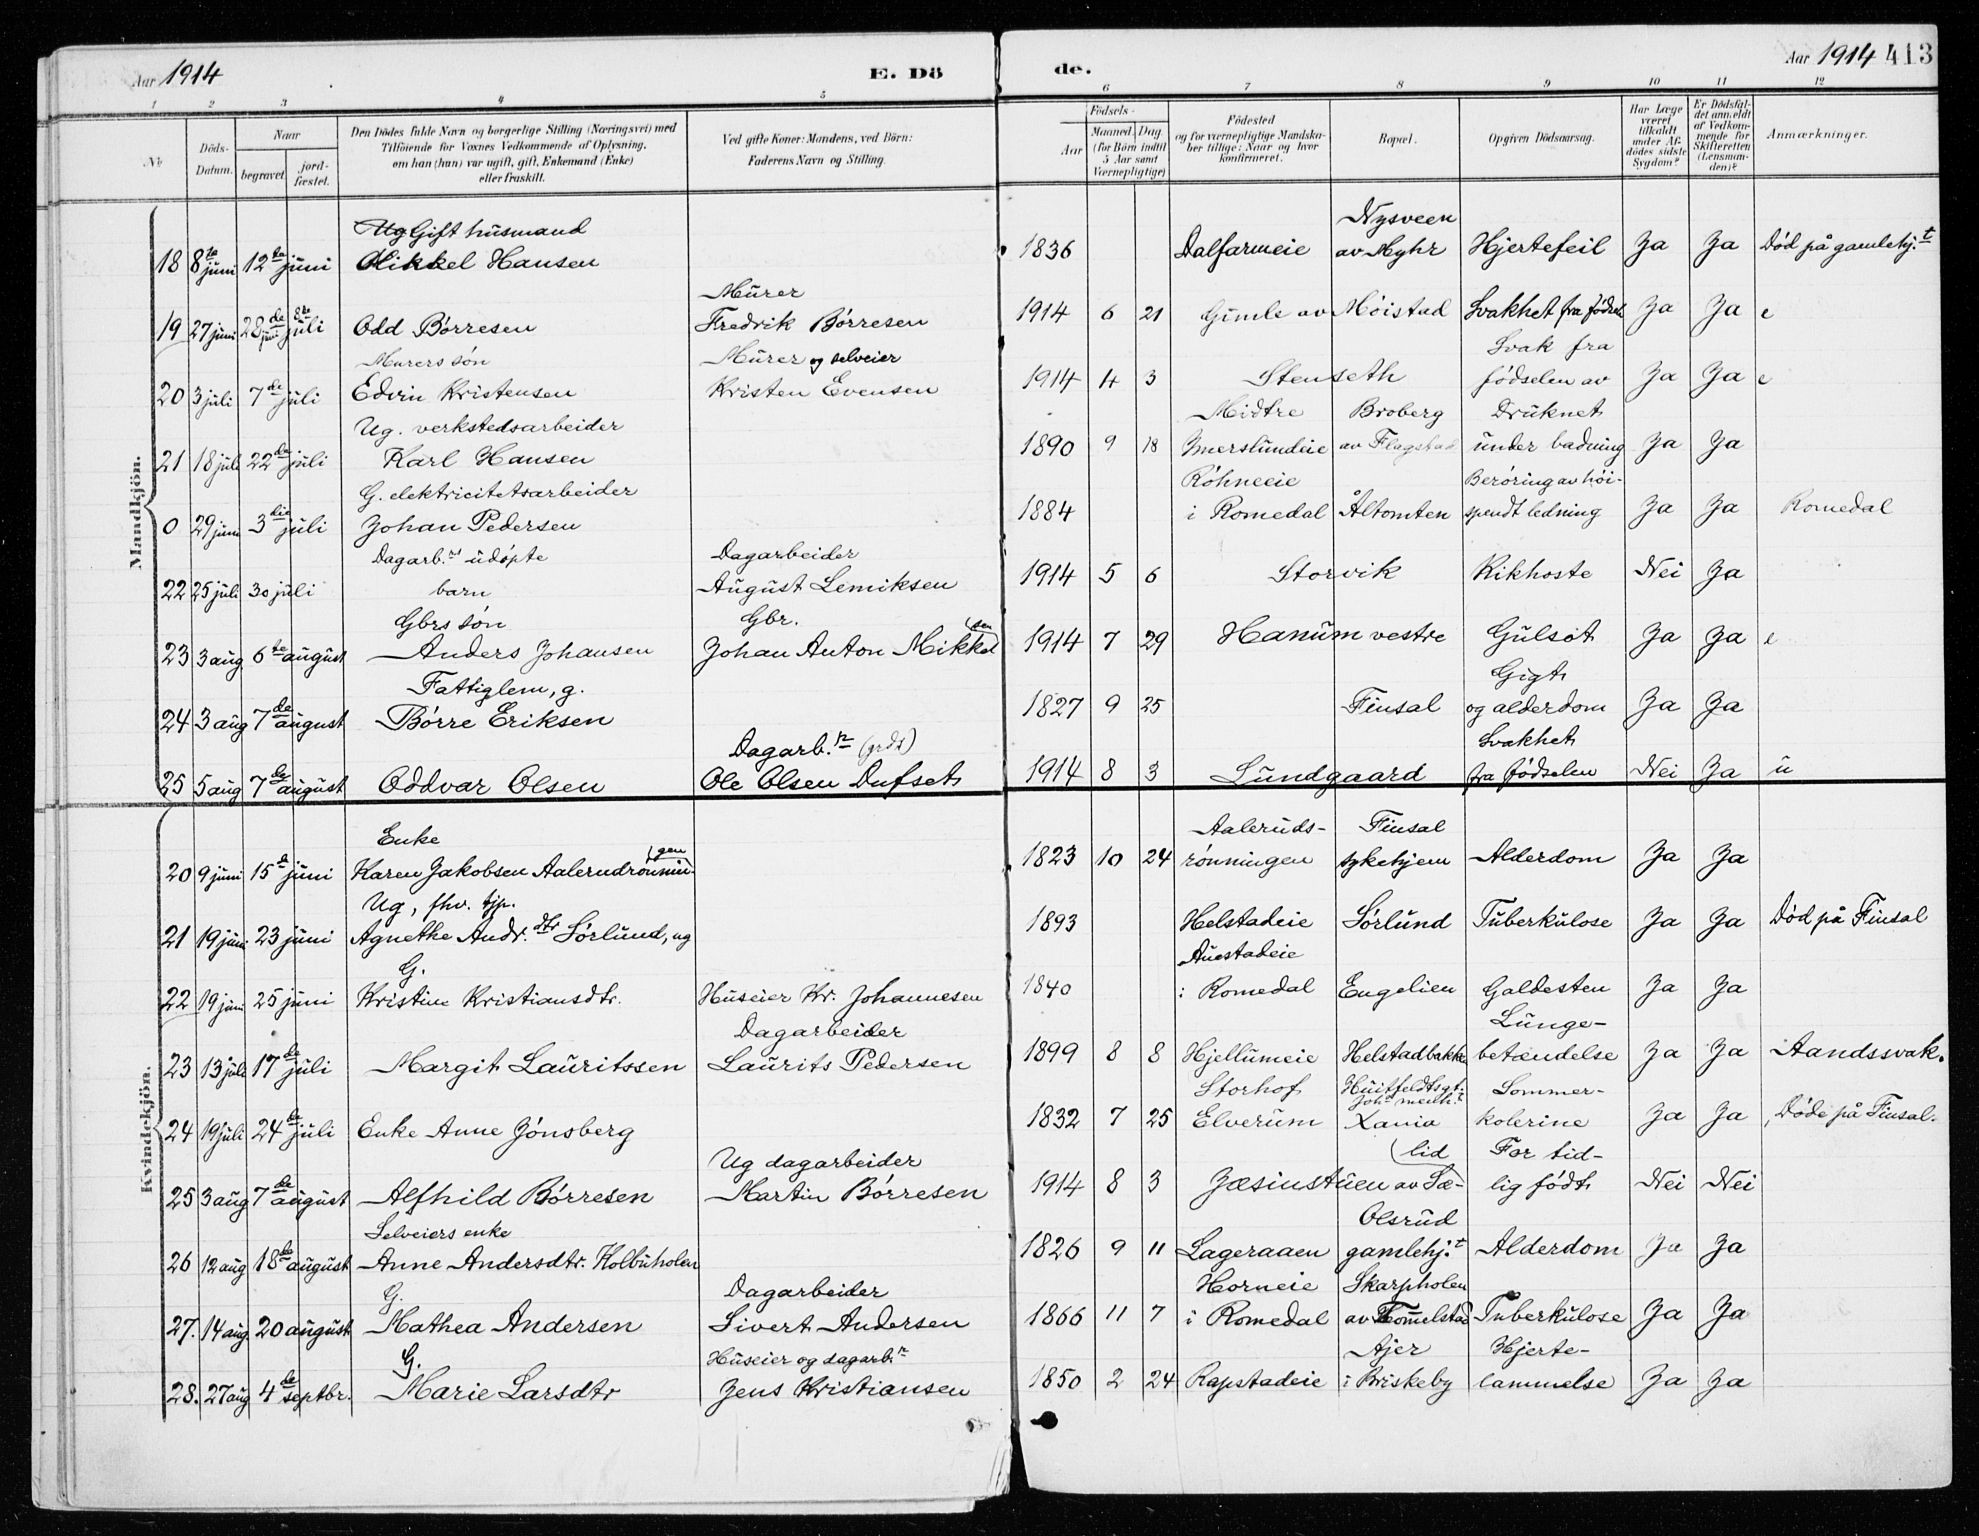 Aar 1914
E. Dö
de.
Aar 1914 413
1 2 3 4 5 6 7 8 9 10 11 12
No
Döds-Datum.
Naar
begravet.
jord-fæstet.
Den Dödes fulde Navn og borgerlige Stilling (Næringsvei) med
Tilföiende for Voxnes Vedkommende af Oplysning,
om han (hun) var ugift, gift, Enkemand (Enke)
eller fraskilt.
Ved gifte Koner: Mandens, ved Börn:
Faderens Navn og Stilling.
Födsels-
Aar
Maaned Dag
(for Börn indtil
5 Aar samt
Værnepligtige)
Födested
og for værnepligtige Mandska-
ber tillige: Naar og hvor
konfirmeret.
Bopæl.
Opgiven Dödsaarsag.
Har Læge
været
tilkaldt
under Af-
dödes sidste
Sygdom?
Er Dödsfal-
det anmeldt
af Vedkom-
mende for
Skifteretten
(Lensman-
den)?
Anmærkninger.
Mandkjön.
Ug Gift husmand Nysveen
18 8de juni 12te juni Mikkel Hansen 1836 Dalfarmeie av Myhr Hjertefeil Ja Ja Död på gamlehj.t
Murer
19 27 juni 28de juni 8de juli Odd Börresen Fredrik Börresen 1914 6 21 Gimle av Möistad Svakhet fra födsel Ja Ja e
Murers sön Murer og selveier Svak fra
20 3 juli 7de juli Edvin Kristensen Kristen Evensen 1914 4 3 Stenseth födselen av Ja Ja e
Ug. verkstedsarbeider Midtre Broberg Druknet
21 18 juli 22de juli Karl Hansen 1890 9 18 Imerslundeie av Flagstad under badning Ja Ja
G. elektricitetsarbeider Röhneeie Beröring av höi-
0 29 juni 3die juli Johan Pedersen 1884 i Romedal Åltomten spendt ledning Ja Ja Romedal
Dagarb.rs udöpte Dagarbeider
22 25 juli 30 juli barn August Lemiksen 1914 5 6 Storvik Kikhoste Nei Ja
Gbrs sön Gbr. sen
23 3 aug 6te august Anders Johansen Johan Anton Mikkel 1914 7 29 Hanum vestre Gulsot Ja Ja e
Fattiglem, g. Gigt
24 3 aug 7de august Börre Eriksen 1827 9 25 Finsal og alderdom Ja Ja
Dagarb.r (grds) Svakhet
25 5 aug 7de august Oddvar Olsen Ole Olsen Dufset 1914 8 3 Lundgaard fra födselen Nei Ja u
Kvindekjön.
Enke gen Aaleruds- Finsal
20 9 juni 15de juni Karen Jakobsen Aalerudrönnin- 1823 10 24 rönningen sykehjem Alderdom Ja Ja
Ug, fhv. tjp.
21 19 juni 23 juni Agnethe Andr.dtr Sörlund, ug 1893 Helstadeie Sörlund Tuberkulose Ja Ja Död på Finsal
G. Auestadeie
22 19 juni 25 juni Kristine Kristiansdtr. Huseier Kr. Johannesen 1840 i Romedal Engelien Galdesten Ja Ja
Dagarbeider Lunge-
23 13 juli 17de juli Margit Lauritssen Laurits Pedersen 1899 8 8 Hjellumeie Helstadbakke betændelse Ja Ja Aandssvak.
Storhof Huitfeldtsgt. Sommer-
Joh.s menh.t
24 19 juli 24de juli Enke Anne Jönsberg 1832 7 25 Elverum Xania kolerine Ja Ja Döde på Finsal.
Ug dagarbeider lid For tid-
25 3 aug 7de august Alfhild Börresen Martin Börresen 1914 8 3 Jæsinstuen av Sæ- lig födt Nei Nei
Selveiers enke Olsrud
26 12 aug 18de august Anne Andersdtr. Kolbuholen 1826 9 11 Lageraaen gamlehj.t Alderdom Ja Ja
G. Dagarbeider Horneie Skarpholen
27. 14 aug 20 august Mathea Andersen Sivert Andersen 1866 11 7 i Romedal av Tommelstad Tuberkulose Ja Ja
G. Huseier og dagarb.r Ajer Hjerte-
28. 27 aug 4de septbr. Marie Larsdtr Jens Kristiansen 1850 2 24 Rapstadeie i Briskeby lammelse Ja Ja